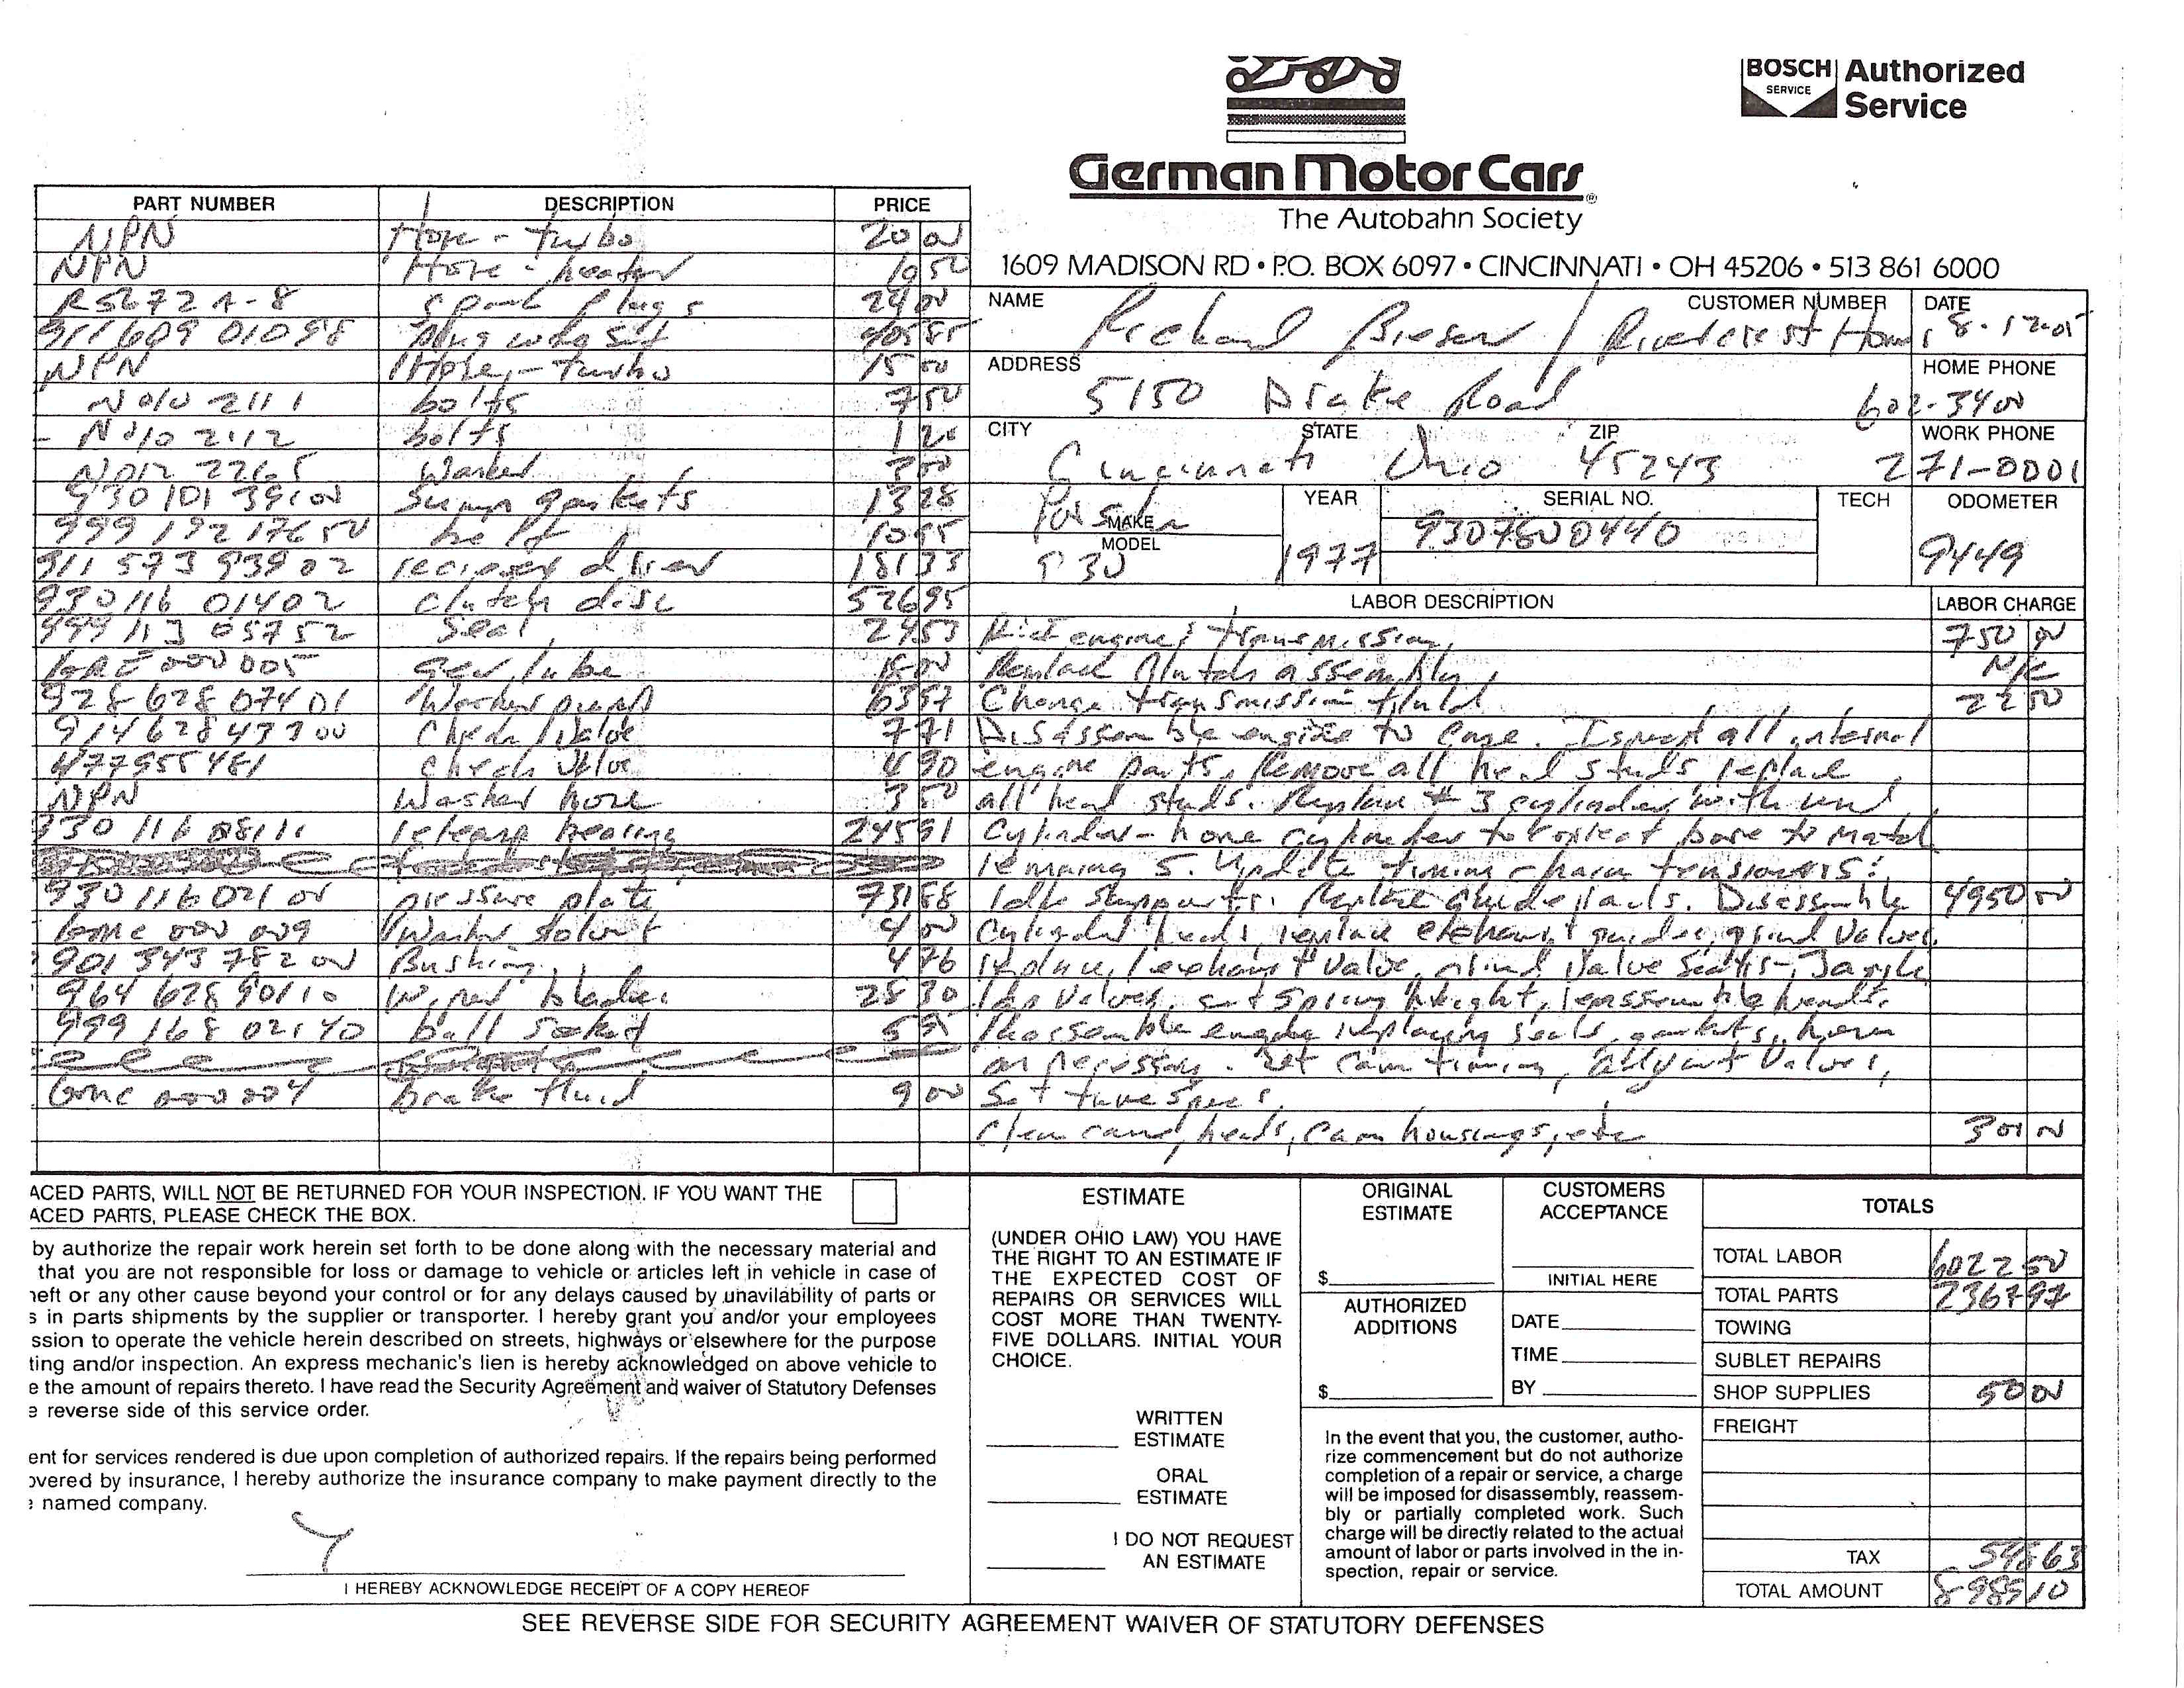 BOSCH SERVICE Authorized Service
German Motor Cars
The Autobahn Society
1609 MADISON RD • P.O. BOX 6097 • CINCINNATI • OH 45206 • 513 861 6000
NAME Richard CUSTOMER NUMBER DATE
ADDRESS 5150 Drake Road HOME PHONE
CITY Cincinnati STATE Ohio ZIP 45243 WORK PHONE 271-0001
MAKE MODEL 930 YEAR 1977 SERIAL NO. 9307800440 TECH ODOMETER 9449
PART NUMBER DESCRIPTION PRICE
NPN Hose - turbo 20 00
NPN Hose - heater 10 50
spark plugs 24 00
911 609 010 98 Plug wire set
NPN Hose - turbo 15 00
bolts 7 50
bolts 1 20
3 00
930 101 391 00 sump gaskets 13 28
999 192 176 50 belt 10 95
911 573 939 02 drier 181 33
930 116 014 02 clutch disc 526 95
999 113 057 52 Seal 24 53
gear lube
928 628 074 01 Washer pump 63 97
Check Valve 7 71
477955481 check valve 4 90
NPN Washer hose 3 50
930 116 081 11 release bearing 245 91
930 116 021 01 pressure plate 731 88
Washer solvent 4 00
901 343 782 00 Bushing 4 76
964 628 901 10 Wiper blades 28 30
999 168 021 40 ball socket
brake fluid 9 00
LABOR DESCRIPTION LABOR CHARGE
engine & transmission 750 00
Replace clutch assembly N/C
Change transmission fluid 22 50
Disassemble engine to case. Ispect all internal
engine parts. Remove all head studs, replace
all head studs. Replace # 3 cylinder with used
cylinder - hone cylinder to correct bore to match
remaing 5. Update timing chain tensioners &
Idler supports. Replace guide rails. Disassemble 4950 00
Cylinder heads, replace exhaust guides, grind valves,
exhaust valve, grind valve seats,
lap valves, set spring height, reassemble heads.
Reassemble engine replacing seals, gaskets,
as necessary. Set cam timing, adjust valves,
Set tune specs.
Clean heads, cam housings, etc 300 00
ACED PARTS, WILL NOT BE RETURNED FOR YOUR INSPECTION. IF YOU WANT THE
ACED PARTS, PLEASE CHECK THE BOX.
by authorize the repair work herein set forth to be done along with the necessary material and
that you are not responsible for loss or damage to vehicle or articles left in vehicle in case of
heft or any other cause beyond your control or for any delays caused by unavilability of parts or
s in parts shipments by the supplier or transporter. I hereby grant you and/or your employees
ssion to operate the vehicle herein described on streets, highways or elsewhere for the purpose
ting and/or inspection. An express mechanic's lien is hereby acknowledged on above vehicle to
e the amount of repairs thereto. I have read the Security Agreement and waiver of Statutory Defenses
e reverse side of this service order.
ent for services rendered is due upon completion of authorized repairs. If the repairs being performed
overed by insurance, I hereby authorize the insurance company to make payment directly to the
e named company.
I HEREBY ACKNOWLEDGE RECEIPT OF A COPY HEREOF
ESTIMATE
(UNDER OHIO LAW) YOU HAVE
THE RIGHT TO AN ESTIMATE IF
THE EXPECTED COST OF
REPAIRS OR SERVICES WILL
COST MORE THAN TWENTY-
FIVE DOLLARS. INITIAL YOUR
CHOICE.
WRITTEN ESTIMATE
ORAL ESTIMATE
I DO NOT REQUEST AN ESTIMATE
ORIGINAL ESTIMATE
$
AUTHORIZED ADDITIONS
$
CUSTOMERS ACCEPTANCE
INITIAL HERE
DATE
TIME
BY
In the event that you, the customer, autho-
rize commencement but do not authorize
completion of a repair or service, a charge
will be imposed for disassembly, reassem-
bly or partially completed work. Such
charge will be directly related to the actual
amount of labor or parts involved in the in-
spection, repair or service.
TOTALS
TOTAL LABOR 6022 50
TOTAL PARTS 2367 97
TOWING
SUBLET REPAIRS
SHOP SUPPLIES 50 00
FREIGHT
TAX 548 63
TOTAL AMOUNT 8989 10
SEE REVERSE SIDE FOR SECURITY AGREEMENT WAIVER OF STATUTORY DEFENSES